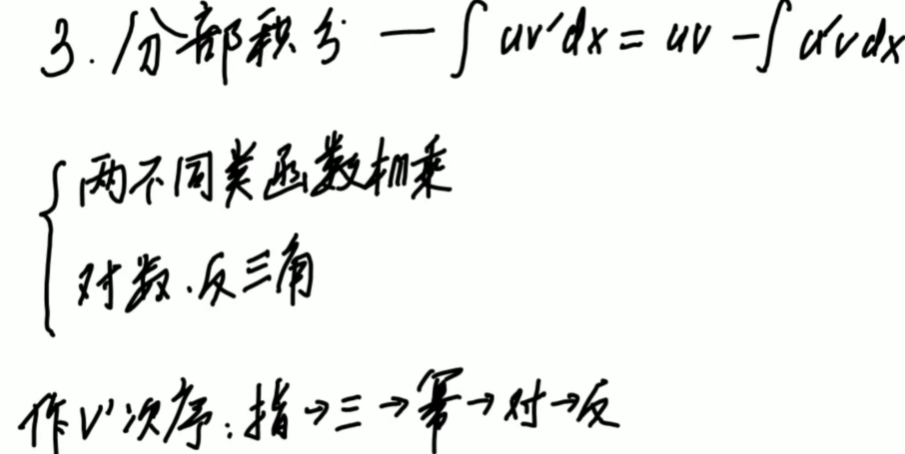 3. 分部积分 — ∫ uv'dx = uv - ∫ u'vdx
两不同类函数相乘
对数.反三角
作v'次序:指→三→幂→对→反